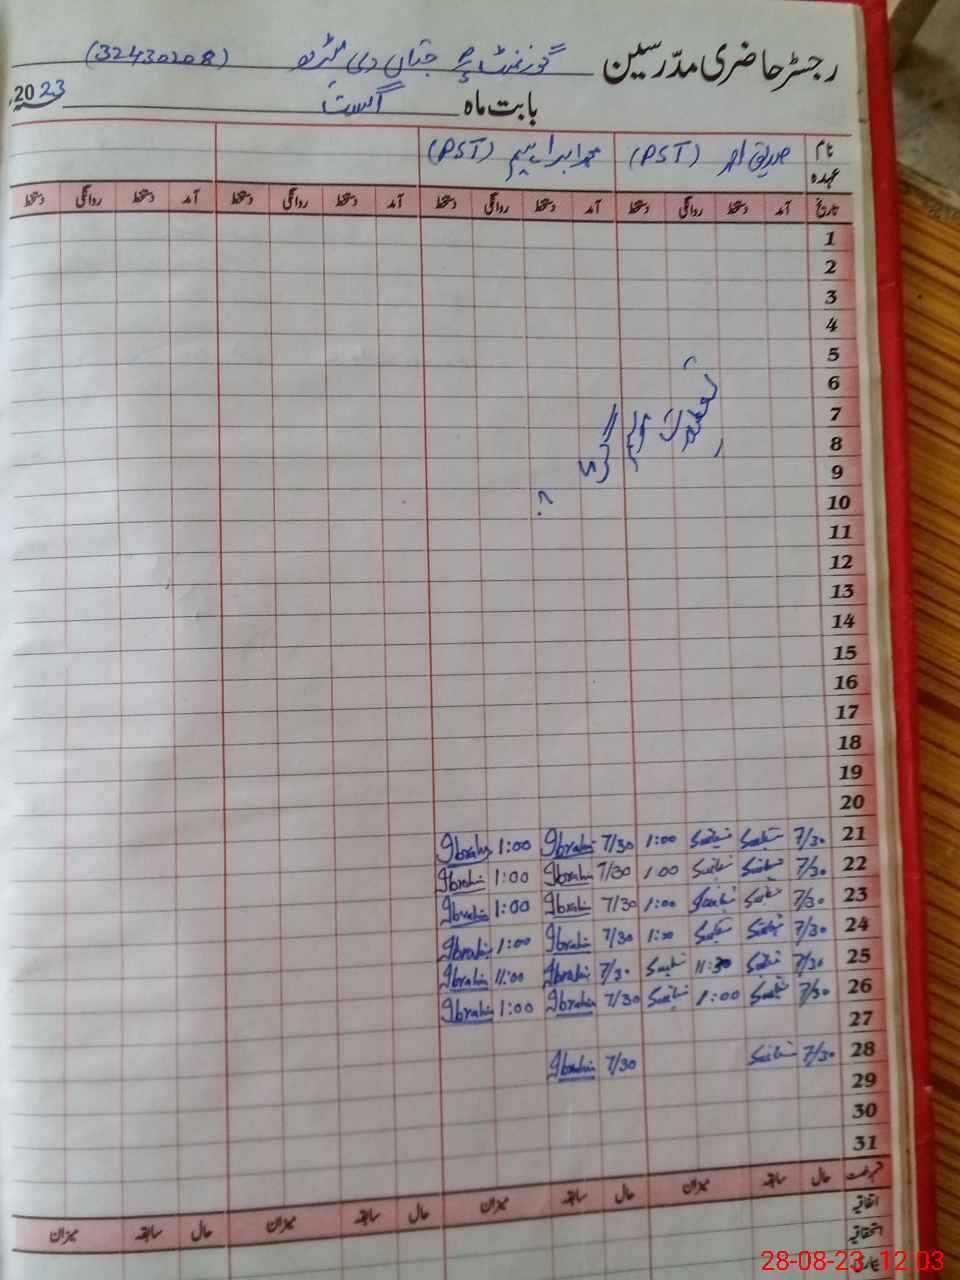 رجسٹر حاضری مدرسین گورنمنٹ دی (32430208)
بابت ماہ اگست 2023ء
نام عہدہ (PST) محمد ابراہیم (PST)
تاریخ آمد دستخط روانگی دستخط آمد دستخط روانگی دستخط آمد دستخط روانگی دستخط آمد دستخط روانگی دستخط
1
2
3
4
5
6
7
8
9
10
تعطیلات موسم گرما
11
12
13
14
15
16
17
18
19
20
21 7/30 1:00 7/30 Ibrahim 1:00 Ibrahim
22 7/30 1:00 7/30 Ibrahim 1:00 Ibrahim
23 7/30 1:00 7/30 Ibrahim 1:00 Ibrahim
24 7/30 1:00 7/30 Ibrahim 1:00 Ibrahim
25 7/30 11:30 7/30 Ibrahim 11:00 Ibrahim
26 7/30 1:00 7/30 Ibrahim 1:00 Ibrahim
27
28 7/30 7/30 Ibrahim
29
30
31
حال سابقہ میزان حال سابقہ میزان حال سابقہ میزان حال سابقہ میزان
اتفاقیہ
استحقاقیہ
بیماری
28-08-23 12:03